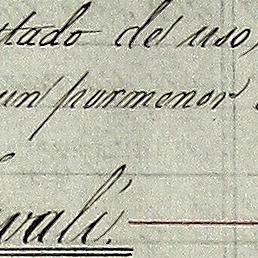 stado de uso,
un pormenor
vali.